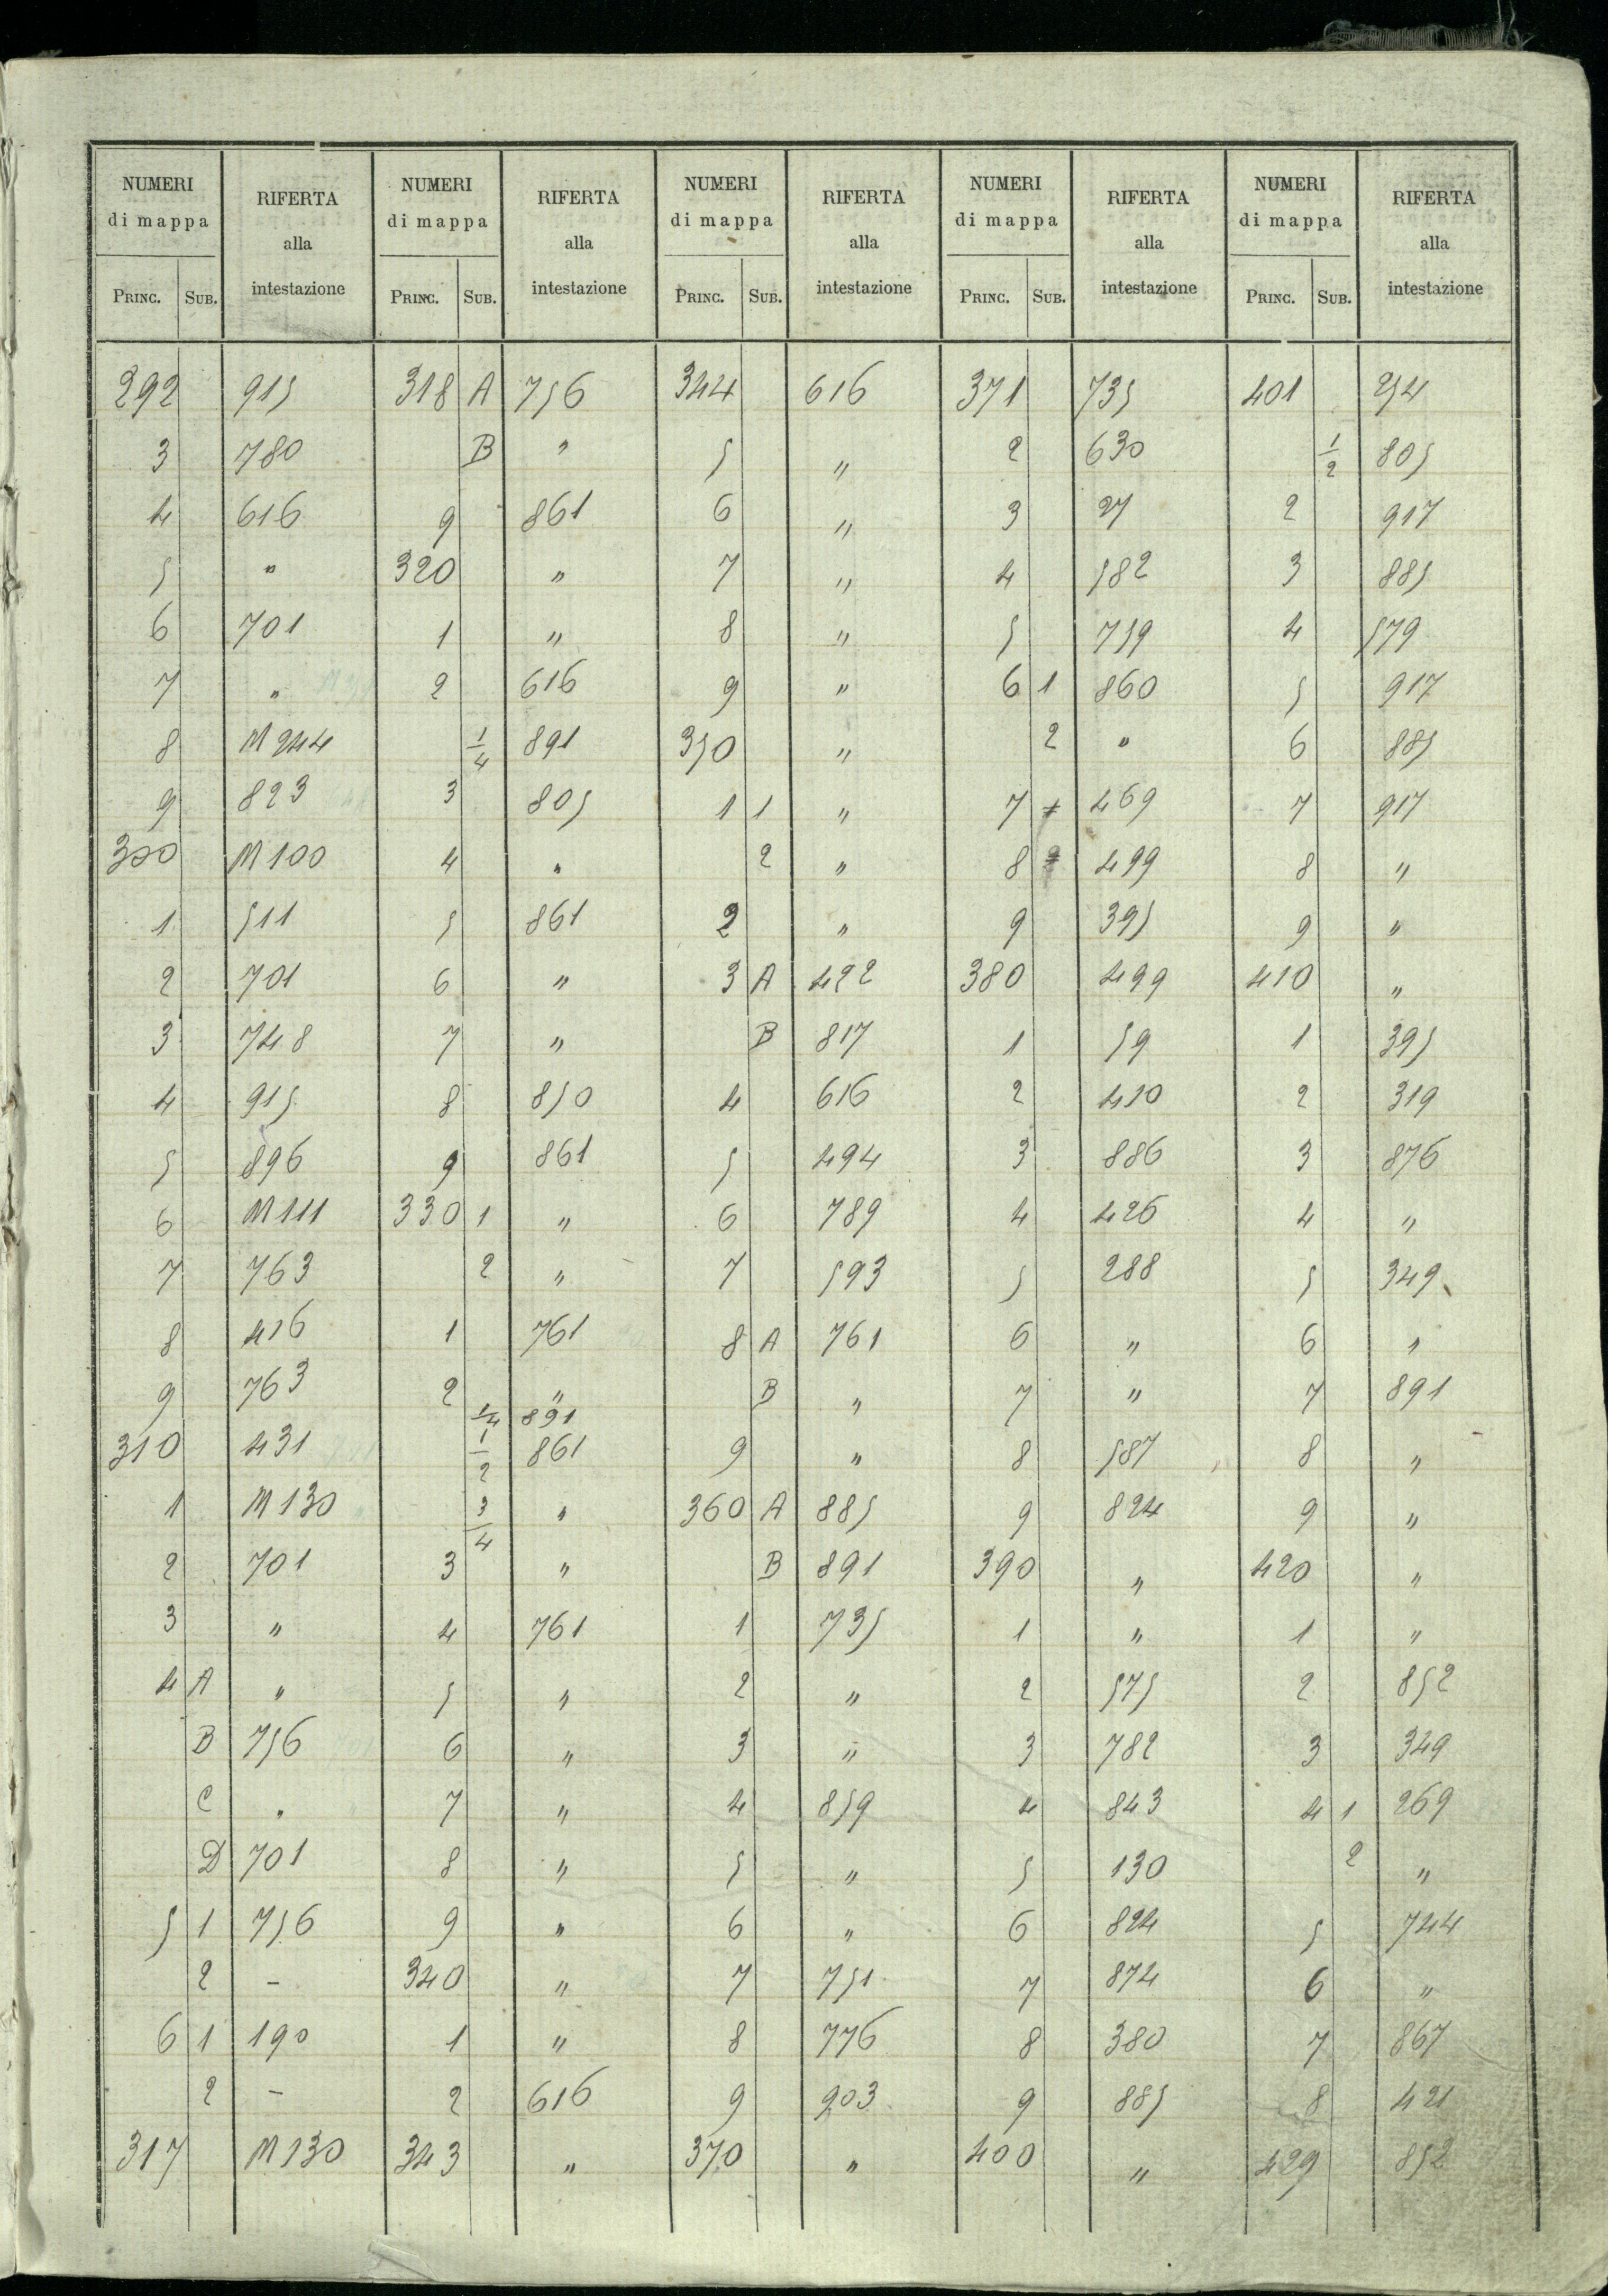 NUMERI di mappa | RIFERTA alla intestazione | NUMERI di mappa | RIFERTA alla intestazione | NUMERI di mappa | RIFERTA alla intestazione | NUMERI di mappa | RIFERTA alla intestazione | NUMERI di mappa | RIFERTA alla intestazione
PRINC. | SUB. | PRINC. | SUB. | PRINC. | SUB. | PRINC. | SUB. | PRINC. | SUB.
292 915 318 A 756 344 616 371 735 401 254
3 780 B " 5 " 2 630 1/2 805
4 616 9 861 6 " 3 27 2 917
5 " 320 " 7 " 4 582 3 885
6 701 1 " 8 " 5 759 4 579
7 " 2 616 9 " 6 1 860 5 917
8 M 244 1/4 891 350 " 2 " 6 885
9 823 3 805 1 1 " 7 469 7 917
300 M 100 4 " 2 " 8 499 8 "
1 511 5 861 2 " 9 395 9 "
2 701 6 " 3 A 422 380 499 410 "
3 748 7 " B 817 1 59 1 395
4 915 8 850 4 616 2 410 2 319
5 896 9 861 5 494 3 886 3 876
6 M 111 330 1 " 6 789 4 426 4 "
7 763 2 " 7 593 5 288 5 349
8 416 1 761 8 A 761 6 " 6 "
9 763 2 " B " 7 " 7 891
1/4 891
310 431 1/2 861 9 " 8 587 8 "
1 M 130 3/4 " 360 A 885 9 824 9 "
2 701 3 " B 891 390 " 420 "
3 " 4 761 1 735 1 " 1 "
4 A " 5 " 2 " 2 575 2 852
B 756 6 " 3 " 3 782 3 349
C " 7 " 4 859 4 843 4 1 269
D 701 8 " 5 " 5 130 2 "
5 1 756 9 " 6 " 6 824 5 744
2 – 340 " 7 751 7 874 6 "
6 1 190 1 " 8 776 8 380 7 867
2 – 2 616 9 903 9 885 8 421
317 M 130 343 " 370 " 400 " 429 852